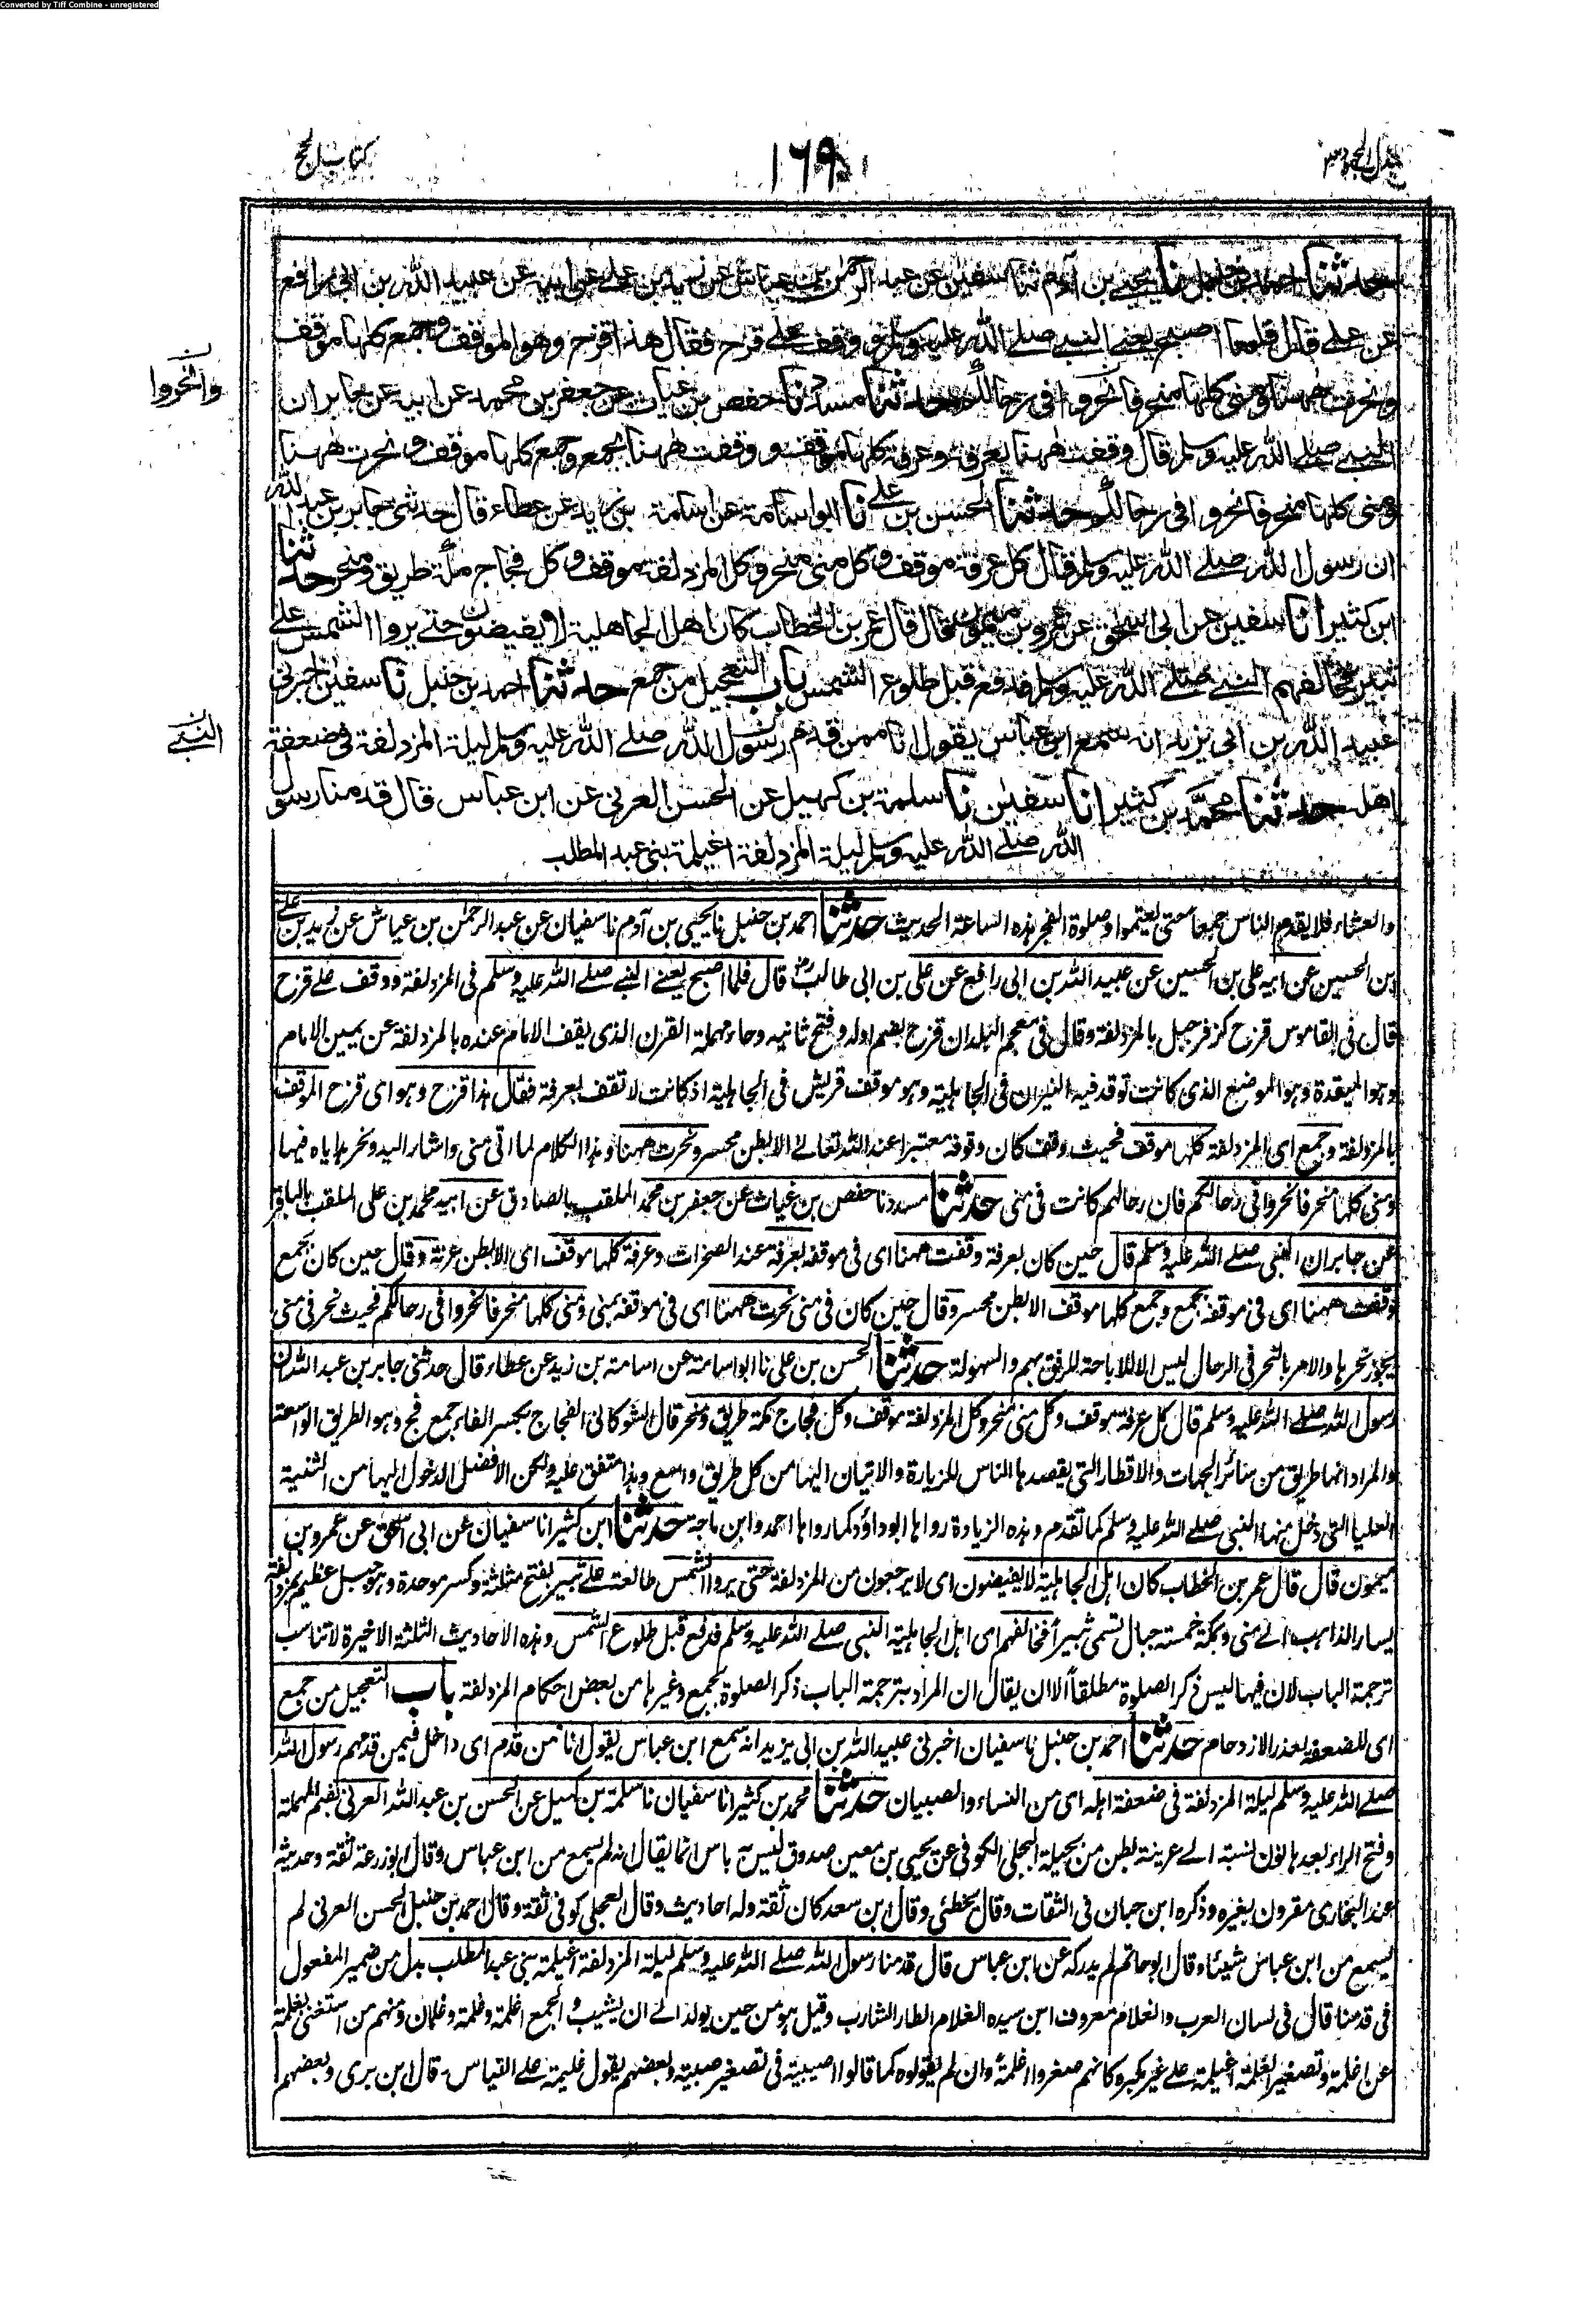 Converted by Tiff Combine - unregistered
بذل المجهود ٣
١٦٩
كتاب الحج
حدثنا احمد بن حنبل نا يحيى بن آدم نا سفين عن عبد الرحمن بن عياش عن زيد بن علي عن ابيه عن عبيد الله بن ابي رافع
عن علي قال فلما اصبح يعني النبي صلے الله عليه وسلم ووقف علے قزح فقال هذا قزح وهو الموقف وجمع كلها موقف
ونحرت ههنا ومنى كلها منحر فانحروا في رحالكم حدثنا مسدد نا حفص بن غياث عن جعفر بن محمد عن ابيه عن جابر ان
وانحروا
النبي صلے الله عليه وسلم قال وقفت ههنا بعرفة وعرفة كلها موقف ووقفت ههنا بجمع وجمع كلها موقف ونحرت ههنا
ومنى كلها منحر فانحروا في رحالكم حدثنا الحسن بن علي نا ابو اسامة عن اسامة بن زيد عن عطاء قال حدثني جابر بن عبد الله
ان رسول الله صلے الله عليه وسلم قال كل عرفة موقف وكل منى منحر وكل المزدلفة موقف وكل فجاج مكة طريق ومنحر حدثنا
ابن كثير انا سفين عن ابي اسحق عن عمرو بن ميمون قال قال عمر بن الخطاب كان اهل الجاهلية لا يفيضون حتے يروا الشمس علے
ثبير فخالفهم النبي صلے الله عليه وسلم فدفع قبل طلوع الشمس باب التعجيل من جمع حدثنا احمد بن حنبل نا سفين اخبرني
عبيد الله بن ابي يزيد انه سمع ابن عباس يقول انا ممن قدم رسول الله صلے الله عليه وسلم ليلة المزدلفة في ضعفة
النبي
اهله حدثنا محمد بن كثير انا سفين نا سلمة بن كهيل عن الحسن العرني عن ابن عباس قال قدمنا رسول
الله صلے الله عليه وسلم ليلة المزدلفة اغيلمة بني عبد المطلب
والعشاء فلا يقدم الناس جمعا حتى يعتموا وصلوة الفجر هذه الساعة الحديث حدثنا احمد بن حنبل نا يحيى بن آدم نا سفيان عن عبد الرحمن بن عياش عن زيد بن علي
بن الحسين عن ابيه علي بن الحسين عن عبيد الله بن ابي رافع عن علي بن ابي طالب رض قال فلما اصبح يعني النبي صلے الله عليه وسلم في المزدلفة ووقف علے قزح
قال في القاموس قزح كزفر جبل بالمزدلفة وقال في معجم البلدان قزح بضم اوله وفتح ثانيه وحاء مهملة القرن الذي يقف الامام عنده بالمزدلفة عن يمين الامام
وهو الميقدة وهو الموضع الذي كانت توقد فيه النيران في الجاهلية وهو موقف قريش في الجاهلية اذ كانت لا تقف بعرفة فقال هذا قزح وهو اى قزح الموقف
بالمزدلفة وجمع اى المزدلفة كلها موقف فحيث وقف كان وقوفه معتبرا عند الله تعالے الا بطن محسر ونحرت ههنا وهذا الكلام لما اتى منى واشار اليه ونحر هداياه فيها
ومنى كلها منحر فانحروا في رحالكم فان رحالهم كانت في منى حدثنا مسدد نا حفص بن غياث عن جعفر بن محمد الملقب بالصادق عن ابيه محمد بن علي الملقب بالباقر
عن جابر ان النبي صلے الله عليه وسلم قال حين كان بعرفة وقفت ههنا اى في موقفه بعرفة عند الصخرات وعرفة كلها موقف اى الا بطن عرنة وقال حين كان بجمع
وقفت ههنا اى في موقفه بجمع وجمع كلها موقف الا بطن محسر وقال حين كان في منى نحرت ههنا اى في موقفه بمنى ومنى كلها منحر فانحروا في رحالكم فحيث نحر في منى
يجوز نحرها والامر بالنحر في الرحال ليس الا للاباحة للرفق بهم والسهولة حدثنا الحسن بن علي نا ابو اسامة عن اسامة بن زيد عن عطاء قال حدثني جابر بن عبد الله ان
رسول الله صلے الله عليه وسلم قال كل عرفة موقف وكل منى منحر وكل المزدلفة موقف وكل فجاج مكة طريق ومنحر قال الشوكاني الفجاج بكسر الفاء جمع فج وهو الطريق الواسعة
والمراد انها طريق من سائر الجهات والاقطار التي يقصدها الناس للزيارة والاتيان اليها من كل طريق واسع وهذا متفق عليه ولكن الافضل الدخول اليها من الثنية
العليا التي دخل منها النبي صلے الله عليه وسلم كما تقدم وهذه الزيادة رواها ابو داؤد كما رواها احمد وابن ماجه حدثنا ابن كثير انا سفيان عن ابي اسحق عن عمرو بن
ميمون قال قال عمر بن الخطاب كان اهل الجاهلية لا يفيضون اى لا يرجعون من المزدلفة حتى يروا الشمس طالعة علے ثبير بفتح مثلثة وكسر موحدة وهو جبل عظيم بمزدلفة
يسار الذاهب الے منى وبمكة خمسة جبال تسمى ثبيرا فخالفهم اى اهل الجاهلية النبي صلے الله عليه وسلم فدفع قبل طلوع الشمس وهذه الاحاديث الثلثة الاخيرة لا تناسب
ترجمة الباب لان فيها ليس ذكر الصلوة مطلقاً الا ان يقال ان المراد بترجمة الباب ذكر الصلوة بجمع وغيرها من بعض احكام المزدلفة باب التعجيل من جمع
اى للضعفة لعذر الازدحام حدثنا احمد بن حنبل نا سفيان اخبرني عبيد الله بن ابي يزيد انه سمع ابن عباس يقول انا ممن قدم اى داخل فيمن قدمهم رسول الله
صلے الله عليه وسلم ليلة المزدلفة في ضعفة اهله اى من النساء والصبيان حدثنا محمد بن كثير انا سفيان نا سلمة بن كهيل عن الحسن بن عبد الله العرني بضم المهملة
وفتح الراء بعدها نون نسبة الے عرينة بطن من بجيلة البجلي الكوفي عن يحيى بن معين صدوق ليس به باس انما يقال انه لم يسمع من ابن عباس وقال ابو زرعة ثقة وحديثه
عند البخاري مقرون بغيره وذكره ابن حبان في الثقات وقال يخطئ وقال ابن سعد كان ثقة وله احاديث وقال العجلي كوفي ثقة وقال احمد بن حنبل الحسن العرني لم
يسمع من ابن عباس شيئا وقال ابو حاتم لم يدركه عن ابن عباس قال قدمنا رسول الله صلے الله عليه وسلم ليلة المزدلفة اغيلمة بني عبد المطلب بدل من ضمير المفعول
في قدمنا قال في لسان العرب والغلام معروف ابن سيده الغلام الطار الشارب وقيل هو من حين يولد الے ان يشيب والجمع اغلمة وغلمة وغلمان ومنهم من استغنى بغلمة
عن اغلمة وتصغير الغلمة اغيلمة علے غير مكبره كانهم صغروا اغلمة وان لم يقولوه كما قالوا اصيبية في تصغير صبية وبعضهم يقول غليمة علے القياس - قال ابن بري وبعضهم